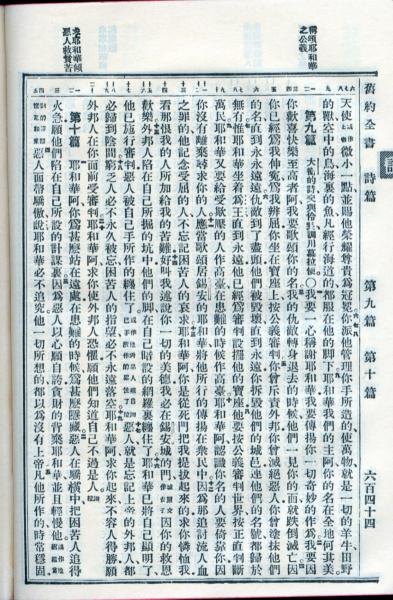 舊約全書 詩篇 第九篇 第十篇 六百四十四
稱頌耶和華
之公義
天使微小一點並賜他榮耀尊貴為冠冕你派他管理你手所造的使萬物就是一切的羊牛田野
的獸空中的鳥海裏的魚凡經行海道的都服在他的腳下耶和華我們的主阿你的名在全地何其美
第九篇 大衛的詩交與伶長調用慕拉便 ○我要一心稱謝耶和華我要傳揚你一切奇妙的作為我要因
你歡喜快樂至高者阿我要歌頌你的名我的仇敵轉身退去的時候他們一見你的面就跌倒滅亡因
你已經為我伸冤為我辨屈你坐在寶座上按公義審判你曾斥責外邦你曾滅絕惡人你曾塗抹他們
的名直到永永遠遠仇敵到了盡頭他們被毀壞直到永遠你拆毀他們的城邑連他們的名號都歸於
無有惟耶和華坐着為王直到永遠他已經為審判設擺他的寶座他要按公義審判世界按正直判斷
萬民耶和華又要給受欺壓的人作高臺在患難的時候作高臺耶和華阿認識你名的人要倚靠你因
你沒有離棄尋求你的人應當歌頌居錫安的耶和華將他所行的傳揚在眾民中因為那追討流人血
之罪的他記念受屈的人不忘記困苦人的哀求耶和華阿你是從死門把我提拔起來的求你憐恤我
看那恨我的人所加給我的苦難好叫我述說你一切的美德我必在錫安城的門因你的救恩
歡樂外邦人陷在自己所掘的坑中他們的腳在自己暗設的網羅裏纏住了耶和華已將自己顯明了
他已施行審判惡人被自己手所作的纏住了惡人就是忘記上帝的外邦人都
必歸到陰間窮乏人必不永久被忘困苦人的指望必不永遠落空耶和華阿求你起來不容人得勝願
外邦人在你面前受審判耶和華阿求你使外邦人恐懼願他們知道自己不過是人細拉
第十篇 耶和華阿你為甚麼站在遠處在患難的時候為甚麼隱藏惡人在驕橫中把困苦人追得
火急願他們陷在自己所設的計謀裏因為惡人以心願自誇貪財的背棄耶和華並且輕慢他
惡人面帶驕傲說耶和華必不追究他一切所想的都以為沒有上帝凡他所作的時常穩固
求耶和華傾
惡人救貧苦